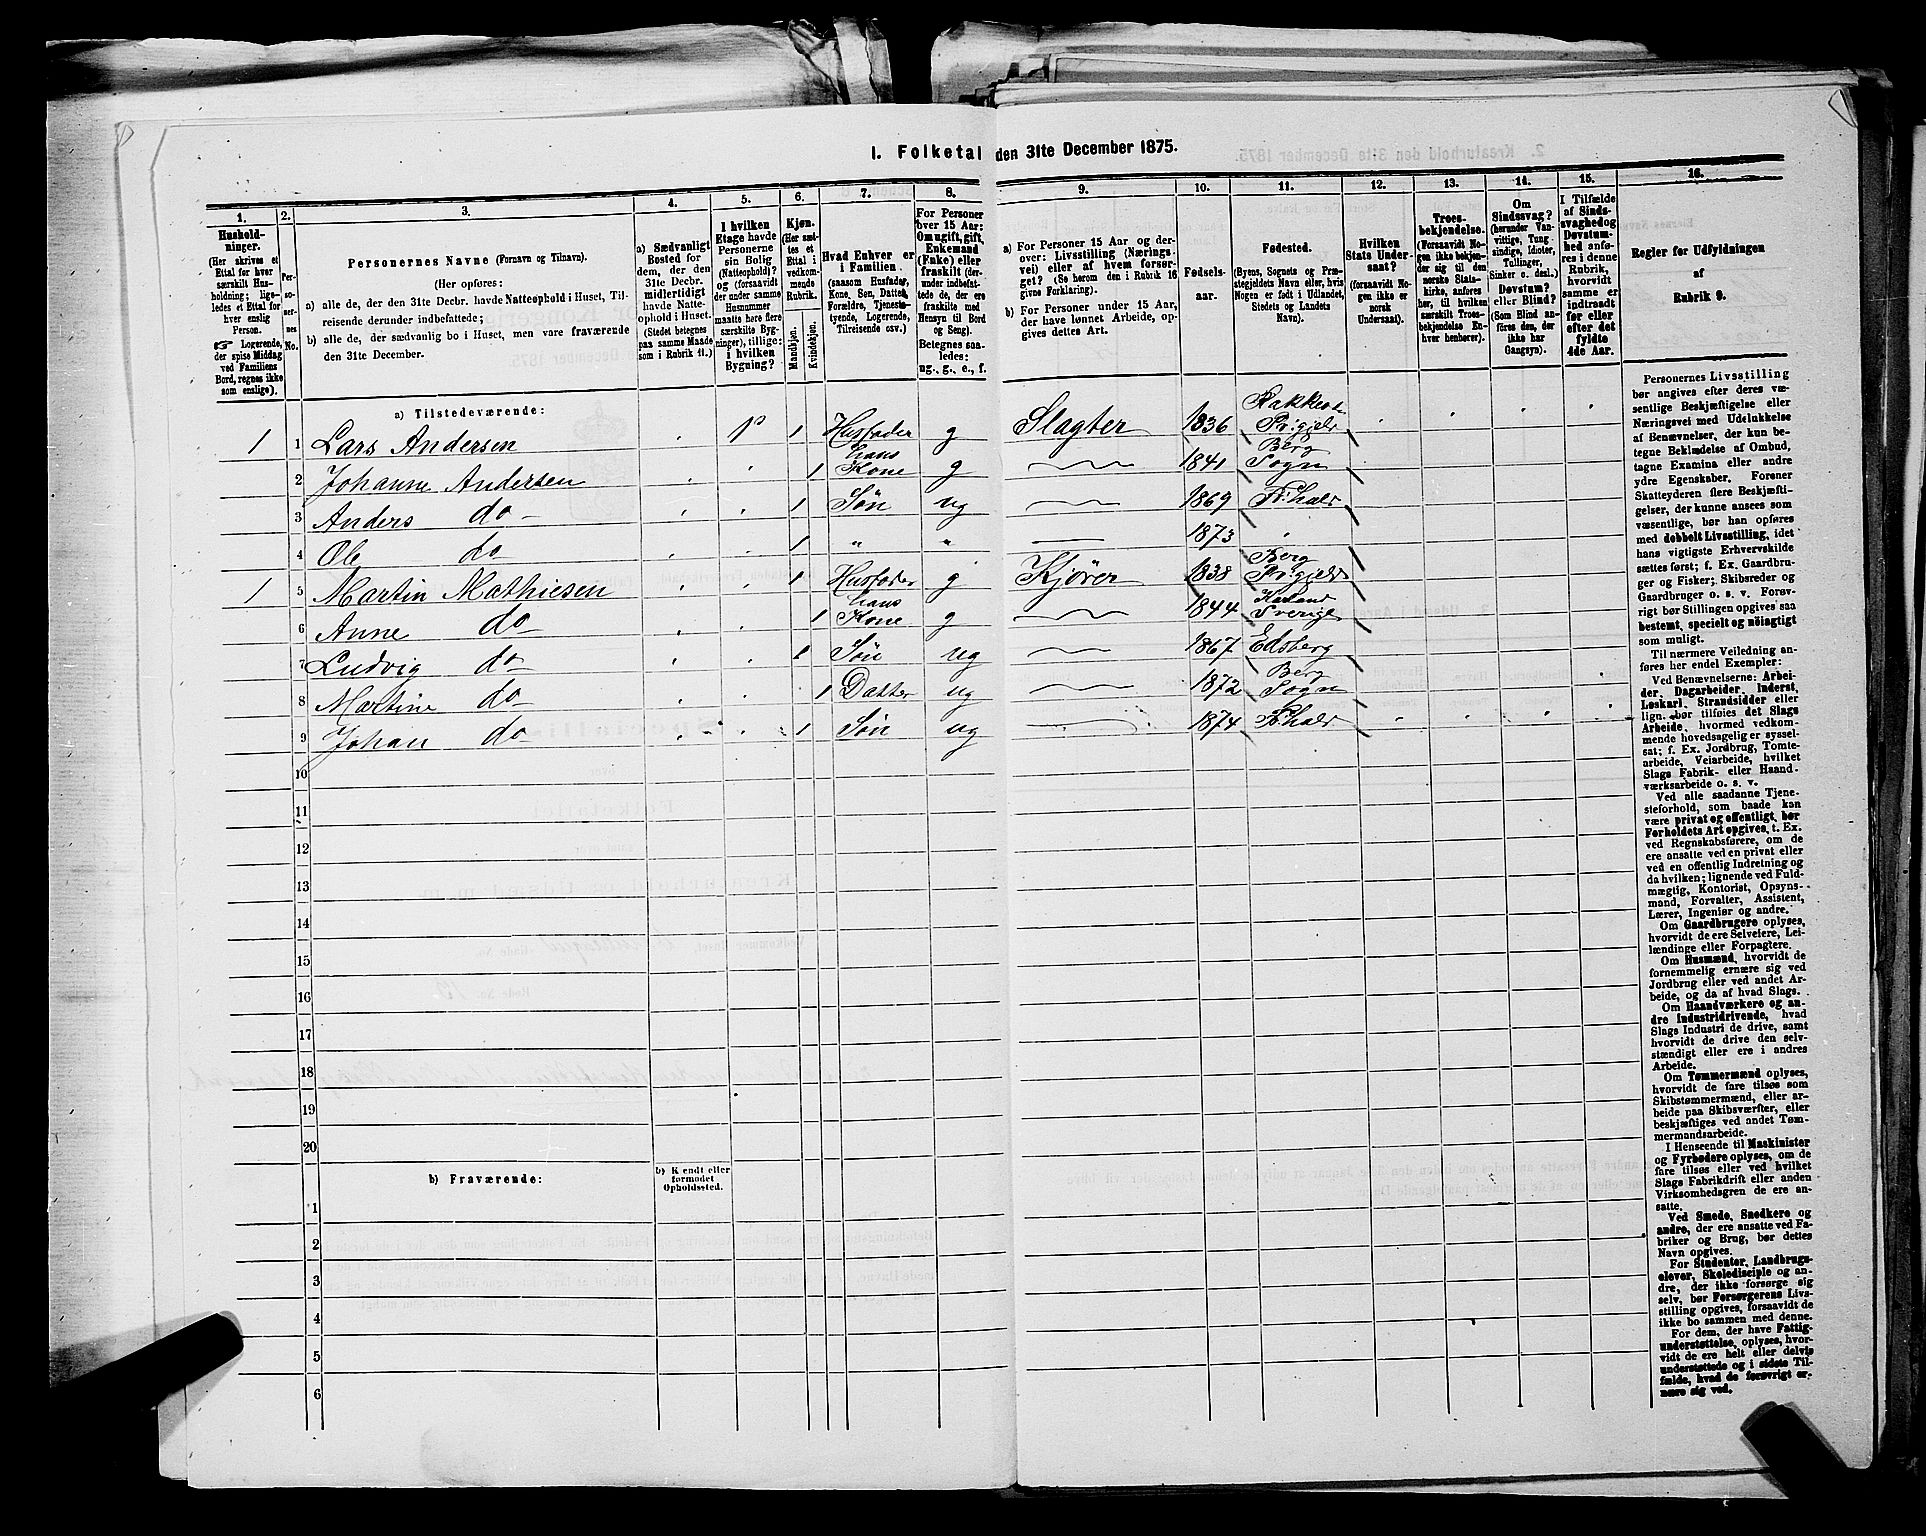 I. Folketal den 31te December 1875.
1. 2. 3. 4. 5. 6. 7. 8. 9. 10. 11. 12. 13. 14. 15. 16.
Husholdninger.
(Her skrives et Ettal for hver særskilt Husholdning; ligeledes et Ettal for hver enslig Person.
Logerende, der spise Middag ved Familiens Bord, regnes ikke som enslige).
Personernes No.
Personernes Navne (Fornavn og Tilnavn).
(Her opføres:
a) alle de, der den 31te Decbr. havde Natteophold i Huset, Tilreisende derunder indbefattede;
b) alle de, der sædvanlig bo i Huset, men vare fraværende den 31te December.
a) Sædvanligt Bosted for dem, der den 31te Decbr. midlertidigt havde Natteophold i Huset.
(Stedet betegnes paa samme Maade som i Rubrik 11.)
I hvilken Etage havde Personerne sin Bolig (Natteophold)? og (forsaavidt der under samme Husnummer maatte høre flere særskilte Bygninger), tillige: i hvilken Bygning?
Kjøn.
(Her sættes et Ettal i vedkommende Rubrik.
Mandkjøn. Kvindekjøn.
Hvad Enhver er i Familien
(saasom Husfader, Kone, Søn, Datter, Tjenestetyende, Logerende, Tilreisende osv.)
For Personer over 15 Aar: Om ugift, gift, Enkemand (Enke) eller fraskilt (derunder indbefattede de, der ere fraskilte med Hensyn til Bord og Seng).
Betegnes saaledes:
ug., g., e., f.
a) For Personer 15 Aar og derover: Livsstilling (Næringsvei) eller af hvem forsørget? (Se herom den i Rubrik 16 givne Forklaring).
b) For Personer under 15 Aar, der have lønnet Arbeide, opgives dettes Art.
Fødselsaar.
Fødested.
(Byens, Sognets og Præstegjeldets Navn eller, hvis Nogen er født i Udlandet, Stedets og Landets Navn).
Hvilken Stats Undersaat?
(forsaavidt Nogen ikke er norsk Undersaat).
Troesbekjendelse.
(Forsaavidt Nogen ikke bekjender sig til den norske Statskirke, anføres her, til hvilken særskilt Troesbekjendelse Enhver henhører).
Om Sindssvag?
(herunder Vanvittige, Tungsindige, Idioter, Tullinger, Sinker o. desl.)
Døvstum? eller Blind?
(Som Blind anføres den, der ikke har Gangsyn).
I Tilfælde af Sindssvaghed og Døvstumhed anføres i denne Rubrik, hvorvidt samme er indtraadt før eller efter det fyldte 4de Aar.
Regler for Udfyldningen af Rubrik 9.
a) Tilstedeværende:
1 1 Lars Andersen 1 Husfader g Slagter 1836 Rakkestad Pr:gjeld
2 Johanne Andersen 1 hans Kone g 1841 Berg Sogn
3 Anders do 1 Søn ug 1869 Fr:hald
4 Ole do 1 " " 1873
1 5 Martin Mathiesen 1 Husfader g Kjører 1838 Berg Pr:gjeld
6 Anne do 1 hans Kone g 1844 Sverige
7 Ludvig do 1 Søn ug 1867 Edsberg
8 Martine do 1 Datter ug 1872 Berg Sogn
9 Johan do 1 Søn ug 1874 Fr:hald
10
11
12
13
14
15
16
17
18
19
20
b) Fraværende:
b) Kjendt eller formodet Opholdssted.
1
2
3
4
5
6
Personernes Livsstilling
bør angives efter deres væ-
sentlige Beskjæftigelse eller
Næringsvei med Udelukkelse
af Benævnelser, der kun be-
tegne Beklædelse af Ombud,
tagne Examina eller andre
ydre Egenskaber. Forener
Skatteyderen flere Beskjæfti-
gelser, der kunne ansees som
væsentlige, bør han opføres
med dobbelt Livsstilling, idet
hans vigtigste Erhvervskilde
sættes først; f. Ex. Gaardbru-
ger og Fisker; Skibsreder og
Gaardbruger o. s. v. Forøv-
rigt bør Stillingen opgives saa
bestemt, specielt og nöiagtigt
som muligt.
Til nærmere Veiledning an-
føres her endel Exempler:
Ved Benævnelserne: Arbei-
der, Dagarbeider, Inderst,
Løskarl, Strandsidder eller
lign. bør tilføies det Slags
Arbeide, hvormed vedkom-
mende hovedsagelig er syssel-
sat; f. Ex. Jordbrug, Tomte-
arbeide, Veiarbeide, hvilket
Slags Fabrik- eller Haand-
værksarbeide o. s. v.
Ved alle saadanne Tjene-
steforhold, som baade kan
være privat og offentligt, bør
Forholdets Art opgives, t. Ex.
ved Regnskabsførere, om de
ere ansatte ved en privat eller
ved en offentlig Indretning og
da hvilken; lignende ved Fuld-
mægtig, Kontorist, Opsyns-
mand, Forvalter, Assistent,
Lærer, Ingeniør og andre.
Om Gaardbrugere oplyses,
hvorvidt de ere Selveiere, Lei-
lændinge eller Forpagtere.
Om Husmænd, hvorvidt de
fornemmelig ernære sig ved
Jordbrug eller ved andet Ar-
beide, og da af hvad Slags.
Om Haandværkere og an-
dre Industridrivende, hvad
Slags Industri de drive, samt
hvorvidt de drive den selv-
stændigt eller ere i andres
Arbeide.
Om Tømmermænd oplyses,
hvorvidt de fare tilsøs som
Skibstømmermænd, eller ar-
beide paa Skibsværfter, eller
beskjæftiges ved andet Tøm-
mermandsarbeide.
I Henseende til Maskinister
og Fyrbødere oplyses, om de
fare tilsøs eller ved hvilket
Slags Fabrikdrift eller anden
Virksomhedsgren de ere an-
satte.
Ved Smede, Snedkere og
andre, der ere ansatte ved Fa-
briker og Brug, bør dettes
Navn opgives.
For Studenter, Landbrugs-
elever, Skoledisciple og an-
dre, der ikke forsørge sig
selv, bør Forsørgerens Livs-
stilling opgives, forsaavidt de
ikke bo sammen med denne.
For dem, der have Fattig-
understøttelse, oplyses, hvor-
vidt de ere helt eller delvis
understøttede og i sidste Til-
fælde, hvad de forøvrigt er-
nære sig ved.